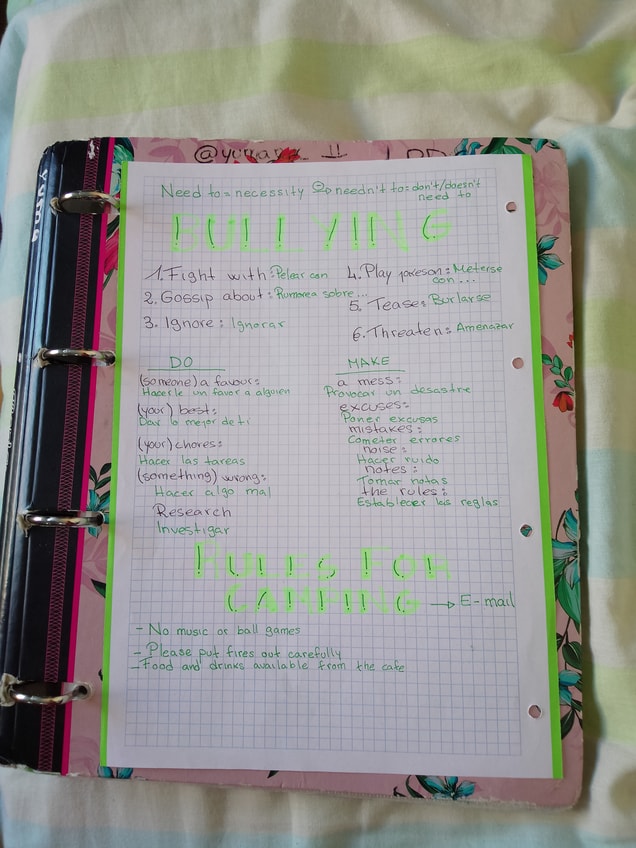 Need to = necessity needn't to: don't/doesn't
need to
BULLYING
1. Fight with: Pelear con
2. Gossip about: Rumorea sobre...
3. Ignore: Ignorar
4. Play jokeson: Meterse
con ...
5. Tease: Burlarse
6. Threaten: Amenazar
DO
(someone) a favour:
Hacerle un favor a alguien
(your) best:
Dar lo mejor de ti
(your) chores:
Hacer las tareas
(something) wrong:
Hacer algo mal
Research
Investigar
MAKE
a mess:
Provocar un desastre
excuses:
Poner excusas
mistakes:
Cometer errores
noise:
Hacer ruido
notes:
Tomar notas
the rules:
Establecer las reglas
RULES FOR
CAMPING → E-mail
- No music or ball games
- Please put fires out carefully
- Food and drinks available from the cafe